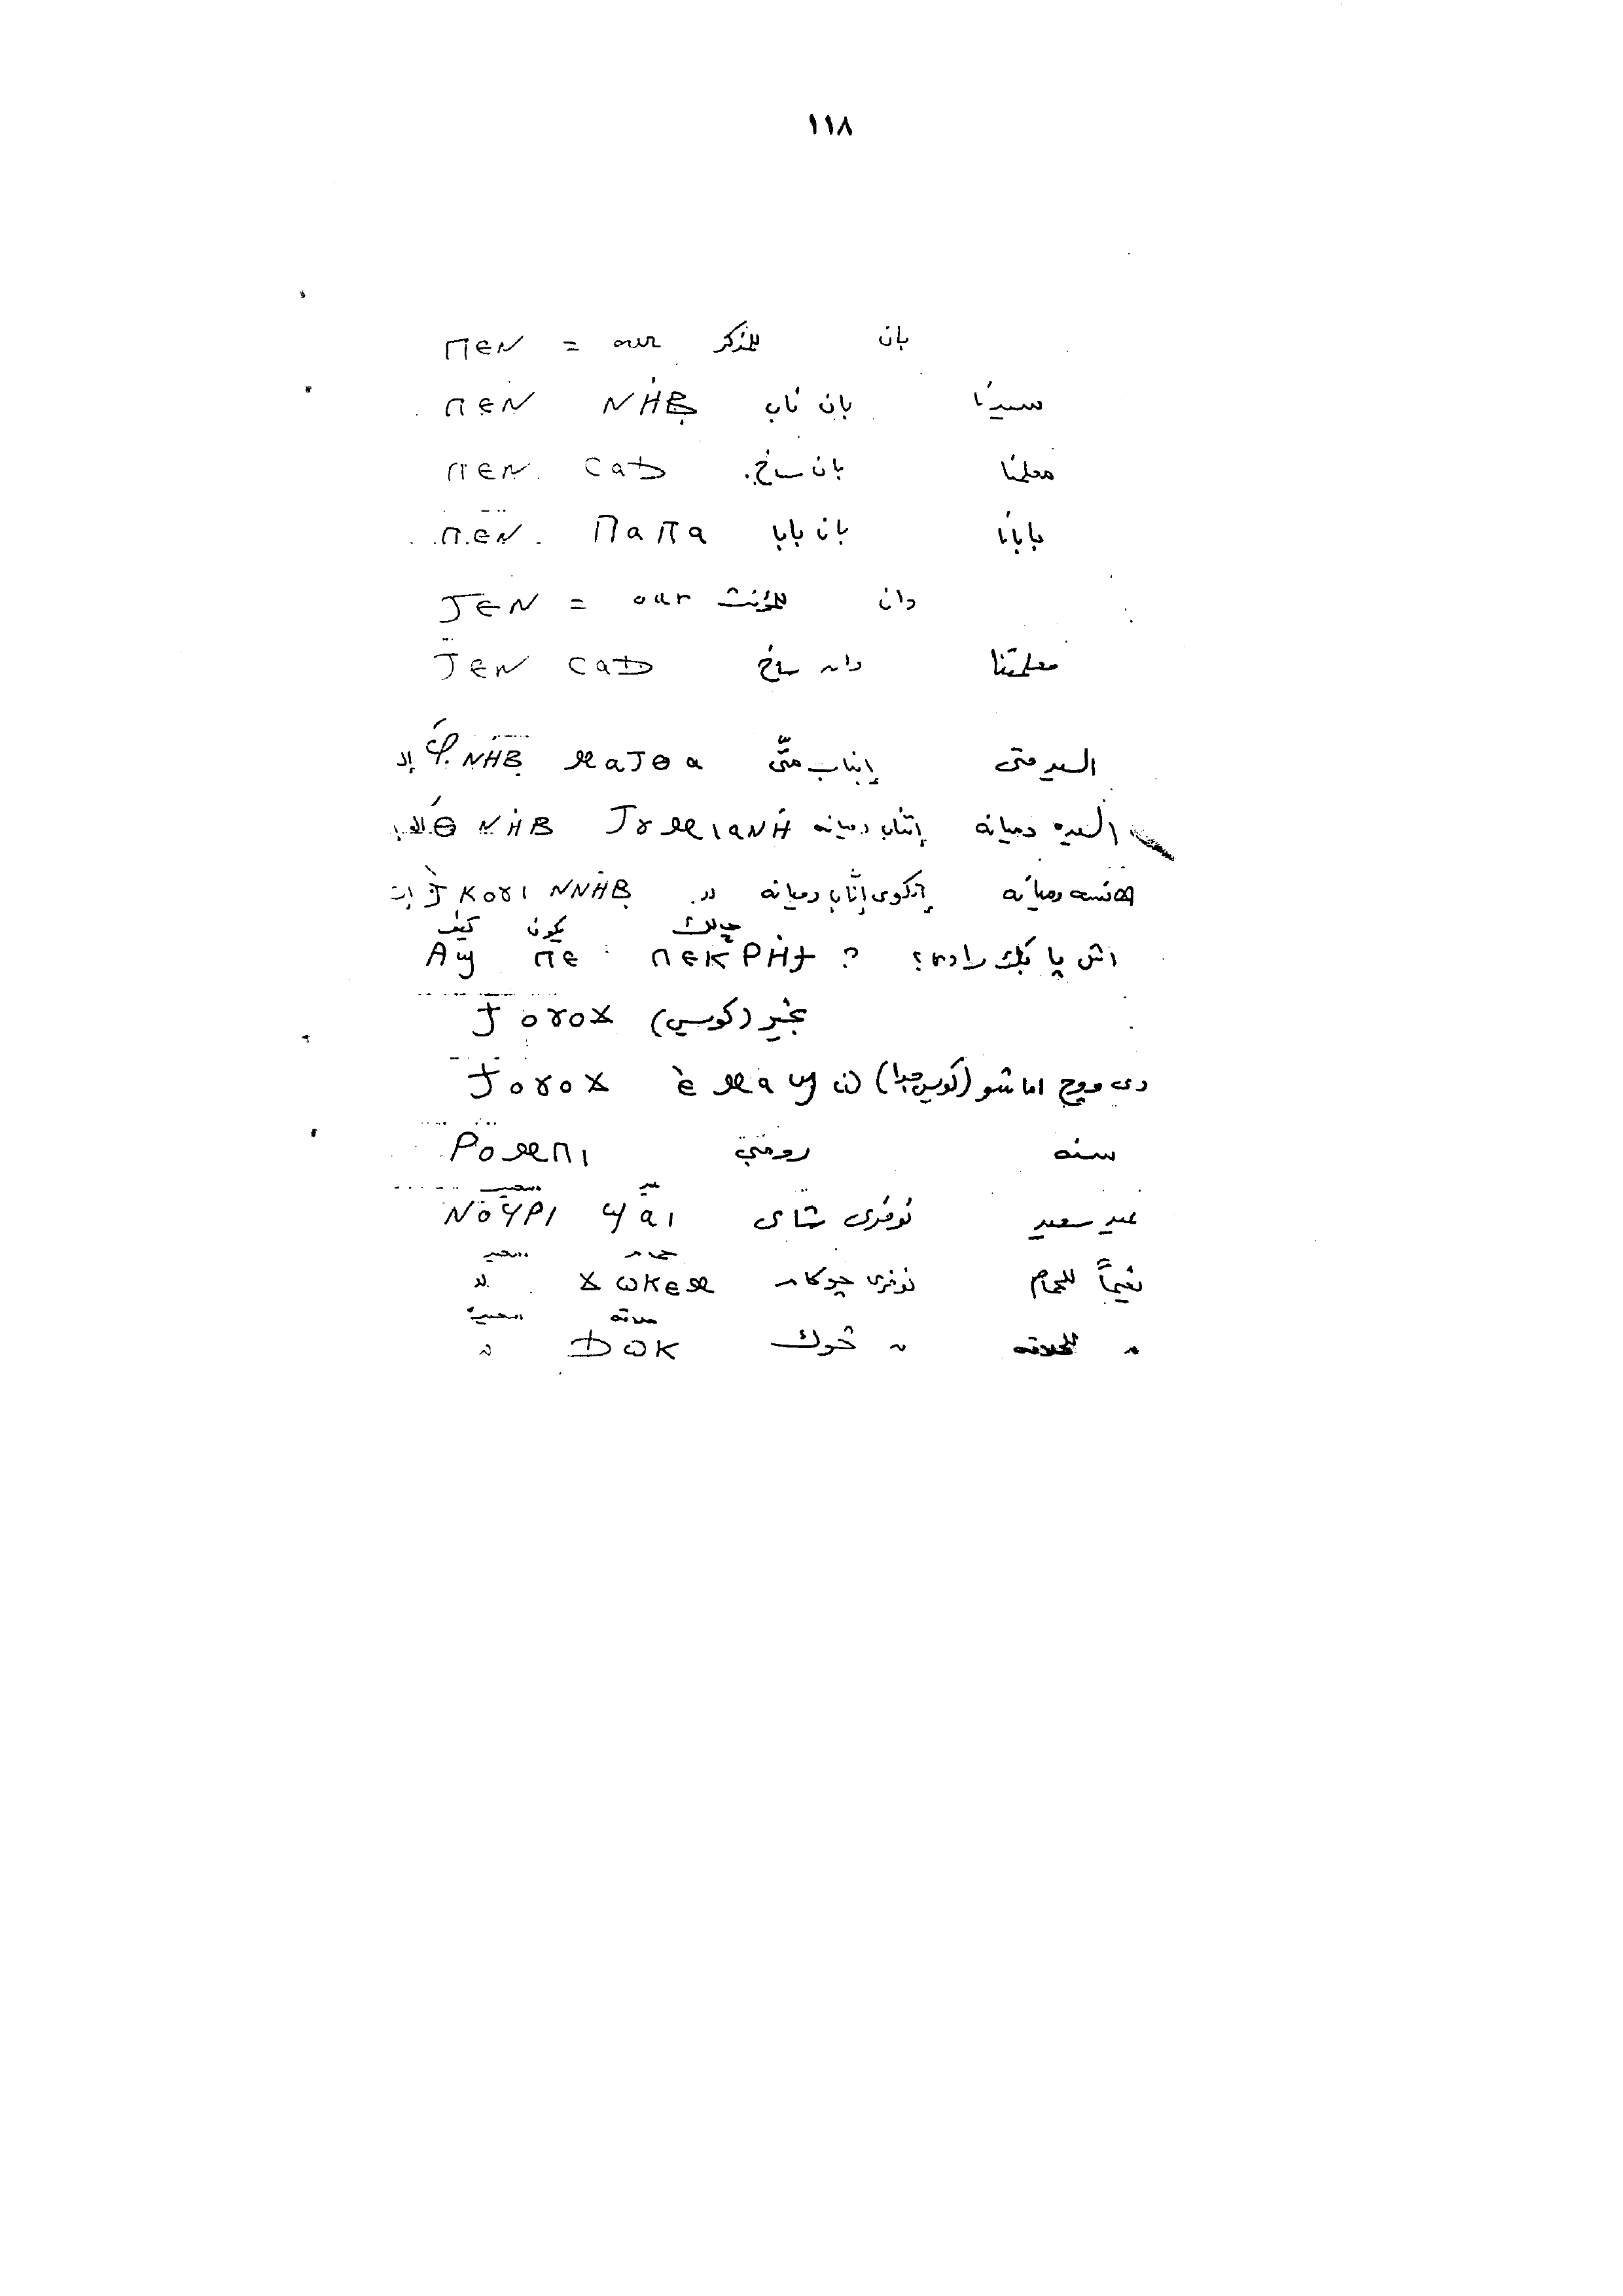 ١١٨
ⲡⲉⲛ = our للمذكر بان
ⲡⲉⲛ ⲛⲏⲃ بان ناب سيدنا
ⲡⲉⲛ ⲥⲁϧ بان ساخ معلمنا
ⲡⲉⲛ ⲡⲁⲡⲁ بان بابا بابانا
ⲧⲉⲛ = our للمؤنث دان
ⲧⲉⲛ ⲥⲁϧ دان ساخ معلمتنا
ⲫ ⲛⲏⲃ ⲙⲁⲧⲑⲁ إبناب متّى السيد متى
ⲑ ⲛⲏⲃ ⲧⲩⲙⲓⲁⲛⲏ إتناب دميانه السيده دميانه
ϯ ⲕⲟⲩⲓ ⲛⲛⲏⲃ إتكوى إنّاب دميانه الآنسه دميانه
كيف يكون حالك
ⲁϣ ⲡⲉ ⲡⲉⲕⲣⲏϯ ? اش پا بك رادى؟
ϯⲟⲩⲟϫ بخير (كويس)
ϯⲟⲩⲟϫ ⲉ̀ⲙⲁϣⲱ (كويس جدا) دى ووج اماشو
ⲣⲟⲙⲡⲓ رومبي سنه
عيد
ⲛⲟϥⲣⲓ ϣⲁⲓ نوفرى شاى عيد سعيد
حمام
〃 ϫⲱⲕⲉⲙ نوفرى جوكام نعيماً للحمام
حلاقه
〃 ϧⲱⲕ 〃 خوك 〃 للحلاقه